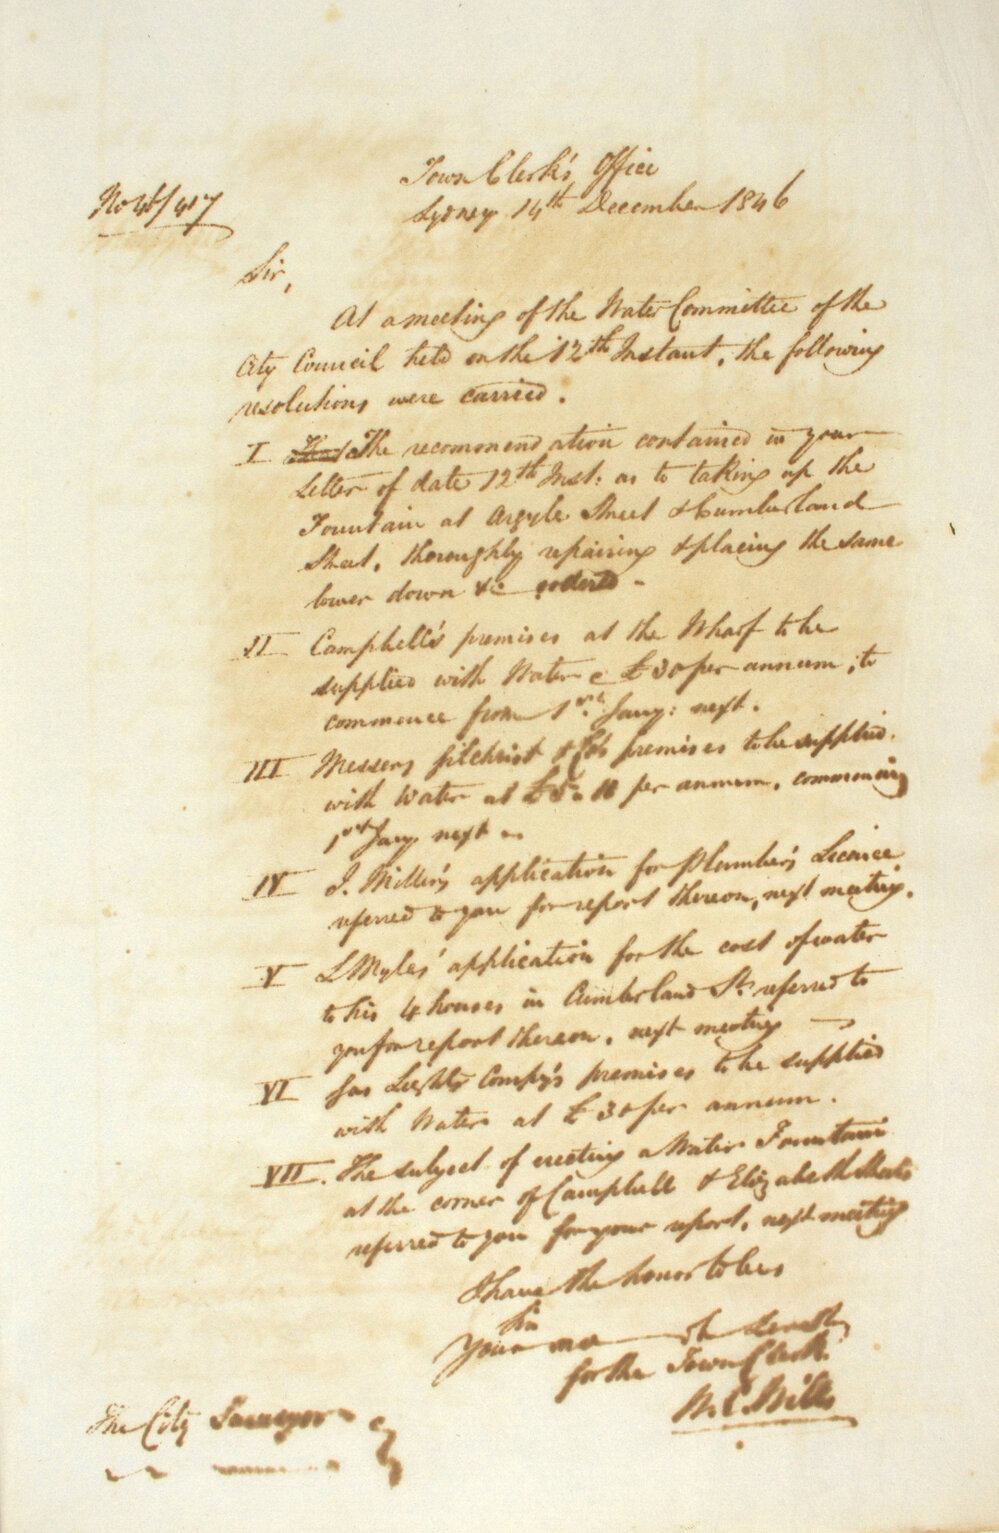 Town Clerk's Office
No 46/417
Sydney 14th December 1846
Sir,
At a meeting of the Water Committee of the
City Council held on the 12th Instant, the following
resolutions were carried.
I The recommendation contained in your
Letter of date 12th Inst: as to taking up the
Fountain at Argyle Street & Cumberland
Street, thoroughly repairing & placing the same
lower down &c ordered -
II Campbell's premises at the Wharf to be
supplied with Water @ £30 per annum, to
commence from 1st Jany: next.
III Messers Gilchrist & Co's premises to be supplied
with Water at per annum, commencing
1st Jany next
IV J. Miller's application for Plumber's Licence
referred to you for report thereon, next meeting.
V L Myles' application for the cost of water
to his 4 houses in Cumberland St. referred to
you for report thereon, next meeting
VI Gas Light Compy's premises to be supplied
with Water at £30 per annum.
VII. The subject of erecting a Water Fountain
at the corner of Campbell & Elizabeth Streets
referred to you for your report, next meeting
I have the honor to be
Sir
Your mo ob Servt
for the Town Clerk
W. C. Wills
The City Surveyor